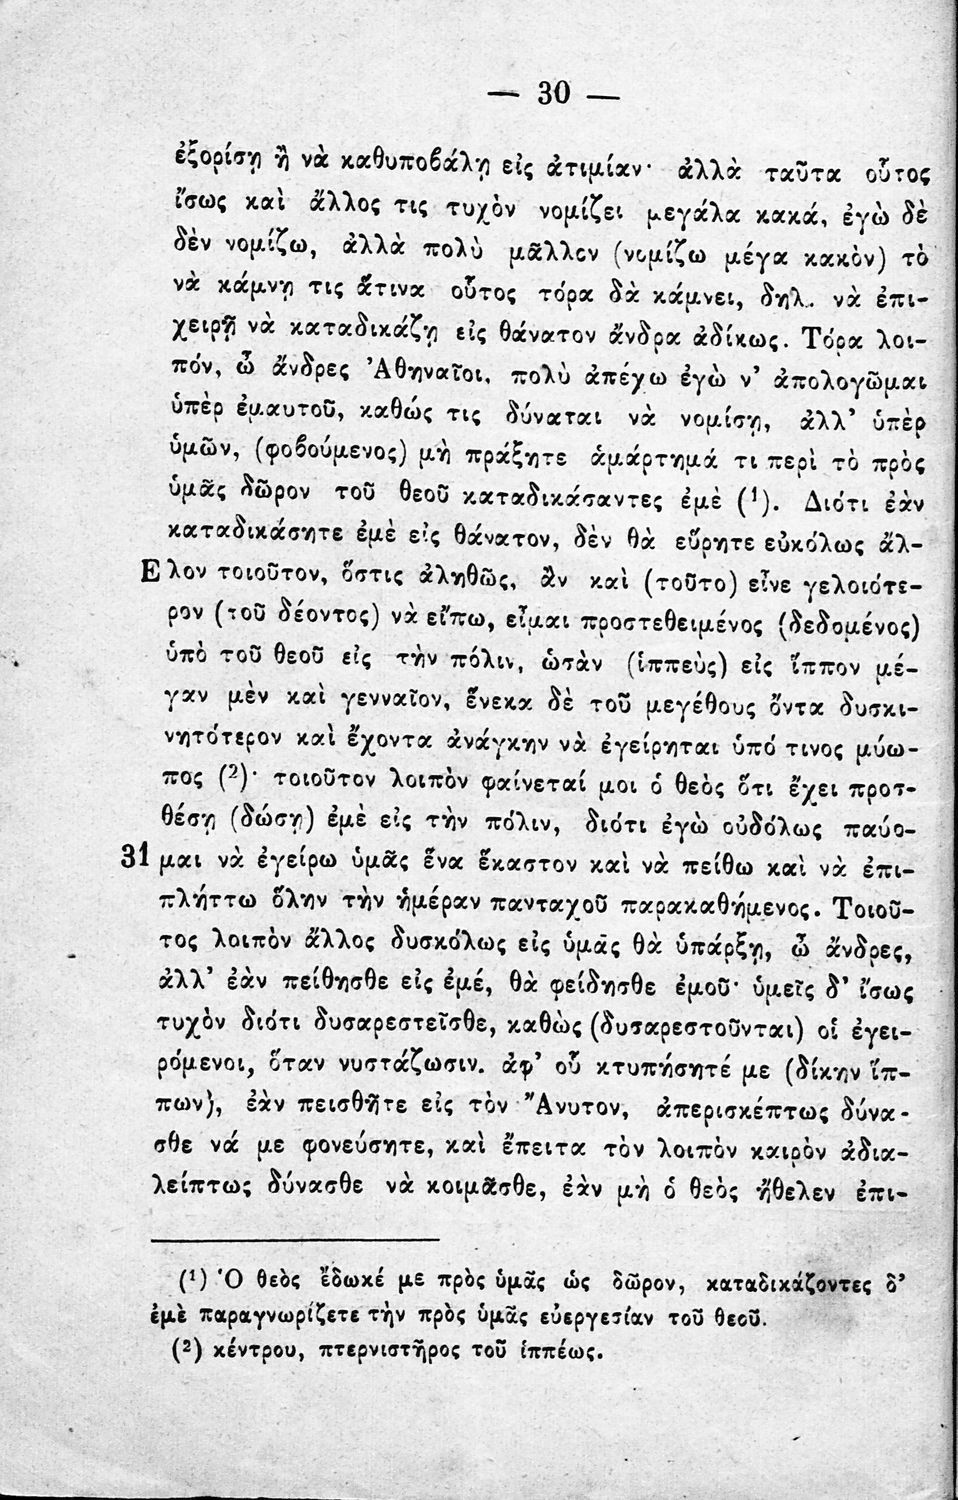 — 30 —
ἐξορίσῃ ἢ νὰ καθυποβάλῃ εἰς ἀτιμίαν· ἀλλὰ ταῦτα οὗτος
ἴσως καὶ ἄλλος τις τυχὸν νομίζει μεγάλα κακά, ἐγὼ δὲ
δὲν νομίζω, ἀλλὰ πολὺ μᾶλλον (νομίζω μέγα κακὸν) τὸ
νὰ κάμνῃ τις ἅτινα οὗτος τόρα δὰ κάμνει, δηλ. νὰ ἐπι-
χειρῇ νὰ καταδικάζῃ εἰς θάνατον ἄνδρα ἀδίκως. Τόρα λοι-
πόν, ὦ ἄνδρες Ἀθηναῖοι, πολὺ ἀπέχω ἐγὼ ν’ ἀπολογῶμαι
ὑπὲρ ἐμαυτοῦ, καθώς τις δύναται νὰ νομίσῃ, ἀλλ’ ὑπὲρ
ὑμῶν, (φοβούμενος) μὴ πράξητε ἁμάρτημά τι περὶ τὸ πρὸς
ὑμᾶς δῶρον τοῦ θεοῦ καταδικάσαντες ἐμὲ (¹). Διότι ἐὰν
καταδικάσητε ἐμὲ εἰς θάνατον, δὲν θὰ εὕρητε εὐκόλως ἄλ-
Ε λον τοιοῦτον, ὅστις ἀληθῶς, ἂν καὶ (τοῦτο) εἶνε γελοιότε-
ρον (τοῦ δέοντος) νὰ εἴπω, εἶμαι προστεθειμένος (δεδομένος)
ὑπὸ τοῦ θεοῦ εἰς τὴν πόλιν, ὡσὰν (ἱππεὺς) εἰς ἵππον μέ-
γαν μὲν καὶ γενναῖον, ἕνεκα δὲ τοῦ μεγέθους ὄντα δυσκι-
νητότερον καὶ ἔχοντα ἀνάγκην νὰ ἐγείρηται ὑπό τινος μύω-
πος (²)· τοιοῦτον λοιπὸν φαίνεταί μοι ὁ θεὸς ὅτι ἔχει προσ-
θέσῃ (δώσῃ) ἐμὲ εἰς τὴν πόλιν, διότι ἐγὼ οὐδόλως παύο-
31 μαι νὰ ἐγείρω ὑμᾶς ἕνα ἕκαστον καὶ νὰ πείθω καὶ νὰ ἐπι-
πλήττω ὅλην τὴν ἡμέραν πανταχοῦ παρακαθήμενος. Τοιοῦ-
τος λοιπὸν ἄλλος δυσκόλως εἰς ὑμᾶς θὰ ὑπάρξῃ, ὦ ἄνδρες,
ἀλλ’ ἐὰν πείθησθε εἰς ἐμέ, θὰ φείδησθε ἐμοῦ· ὑμεῖς δ’ ἴσως
τυχὸν διότι δυσαρεστεῖσθε, καθὼς (δυσαρεστοῦνται) οἱ ἐγει-
ρόμενοι, ὅταν νυστάζωσιν. ἀφ’ οὗ κτυπήσητέ με (δίκην ἵπ-
πων), ἐὰν πεισθῆτε εἰς τὸν Ἄνυτον, ἀπερισκέπτως δύνα-
σθε νά με φονεύσητε, καὶ ἔπειτα τὸν λοιπὸν καιρὸν ἀδια-
λείπτως δύνασθε νὰ κοιμᾶσθε, ἐὰν μὴ ὁ θεὸς ἤθελεν ἐπι-
(¹) Ὁ θεὸς ἔδωκέ με πρὸς ὑμᾶς ὡς δῶρον, καταδικάζοντες δ’
ἐμὲ παραγνωρίζετε τὴν πρὸς ὑμᾶς εὐεργεσίαν τοῦ θεοῦ.
(²) κέντρου, πτερνιστῆρος τοῦ ἱππέως.